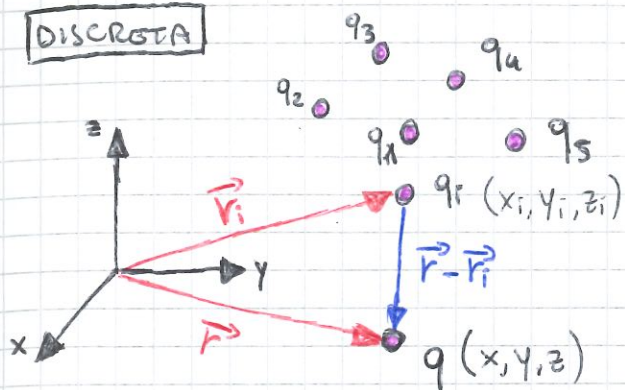 DISCRETA
q₃
q₄
q₂
q₁
q₅
z
r⃗ᵢ
qᵢ (xᵢ, yᵢ, zᵢ)
y
r⃗ - r⃗ᵢ
x
r⃗
q (x, y, z)